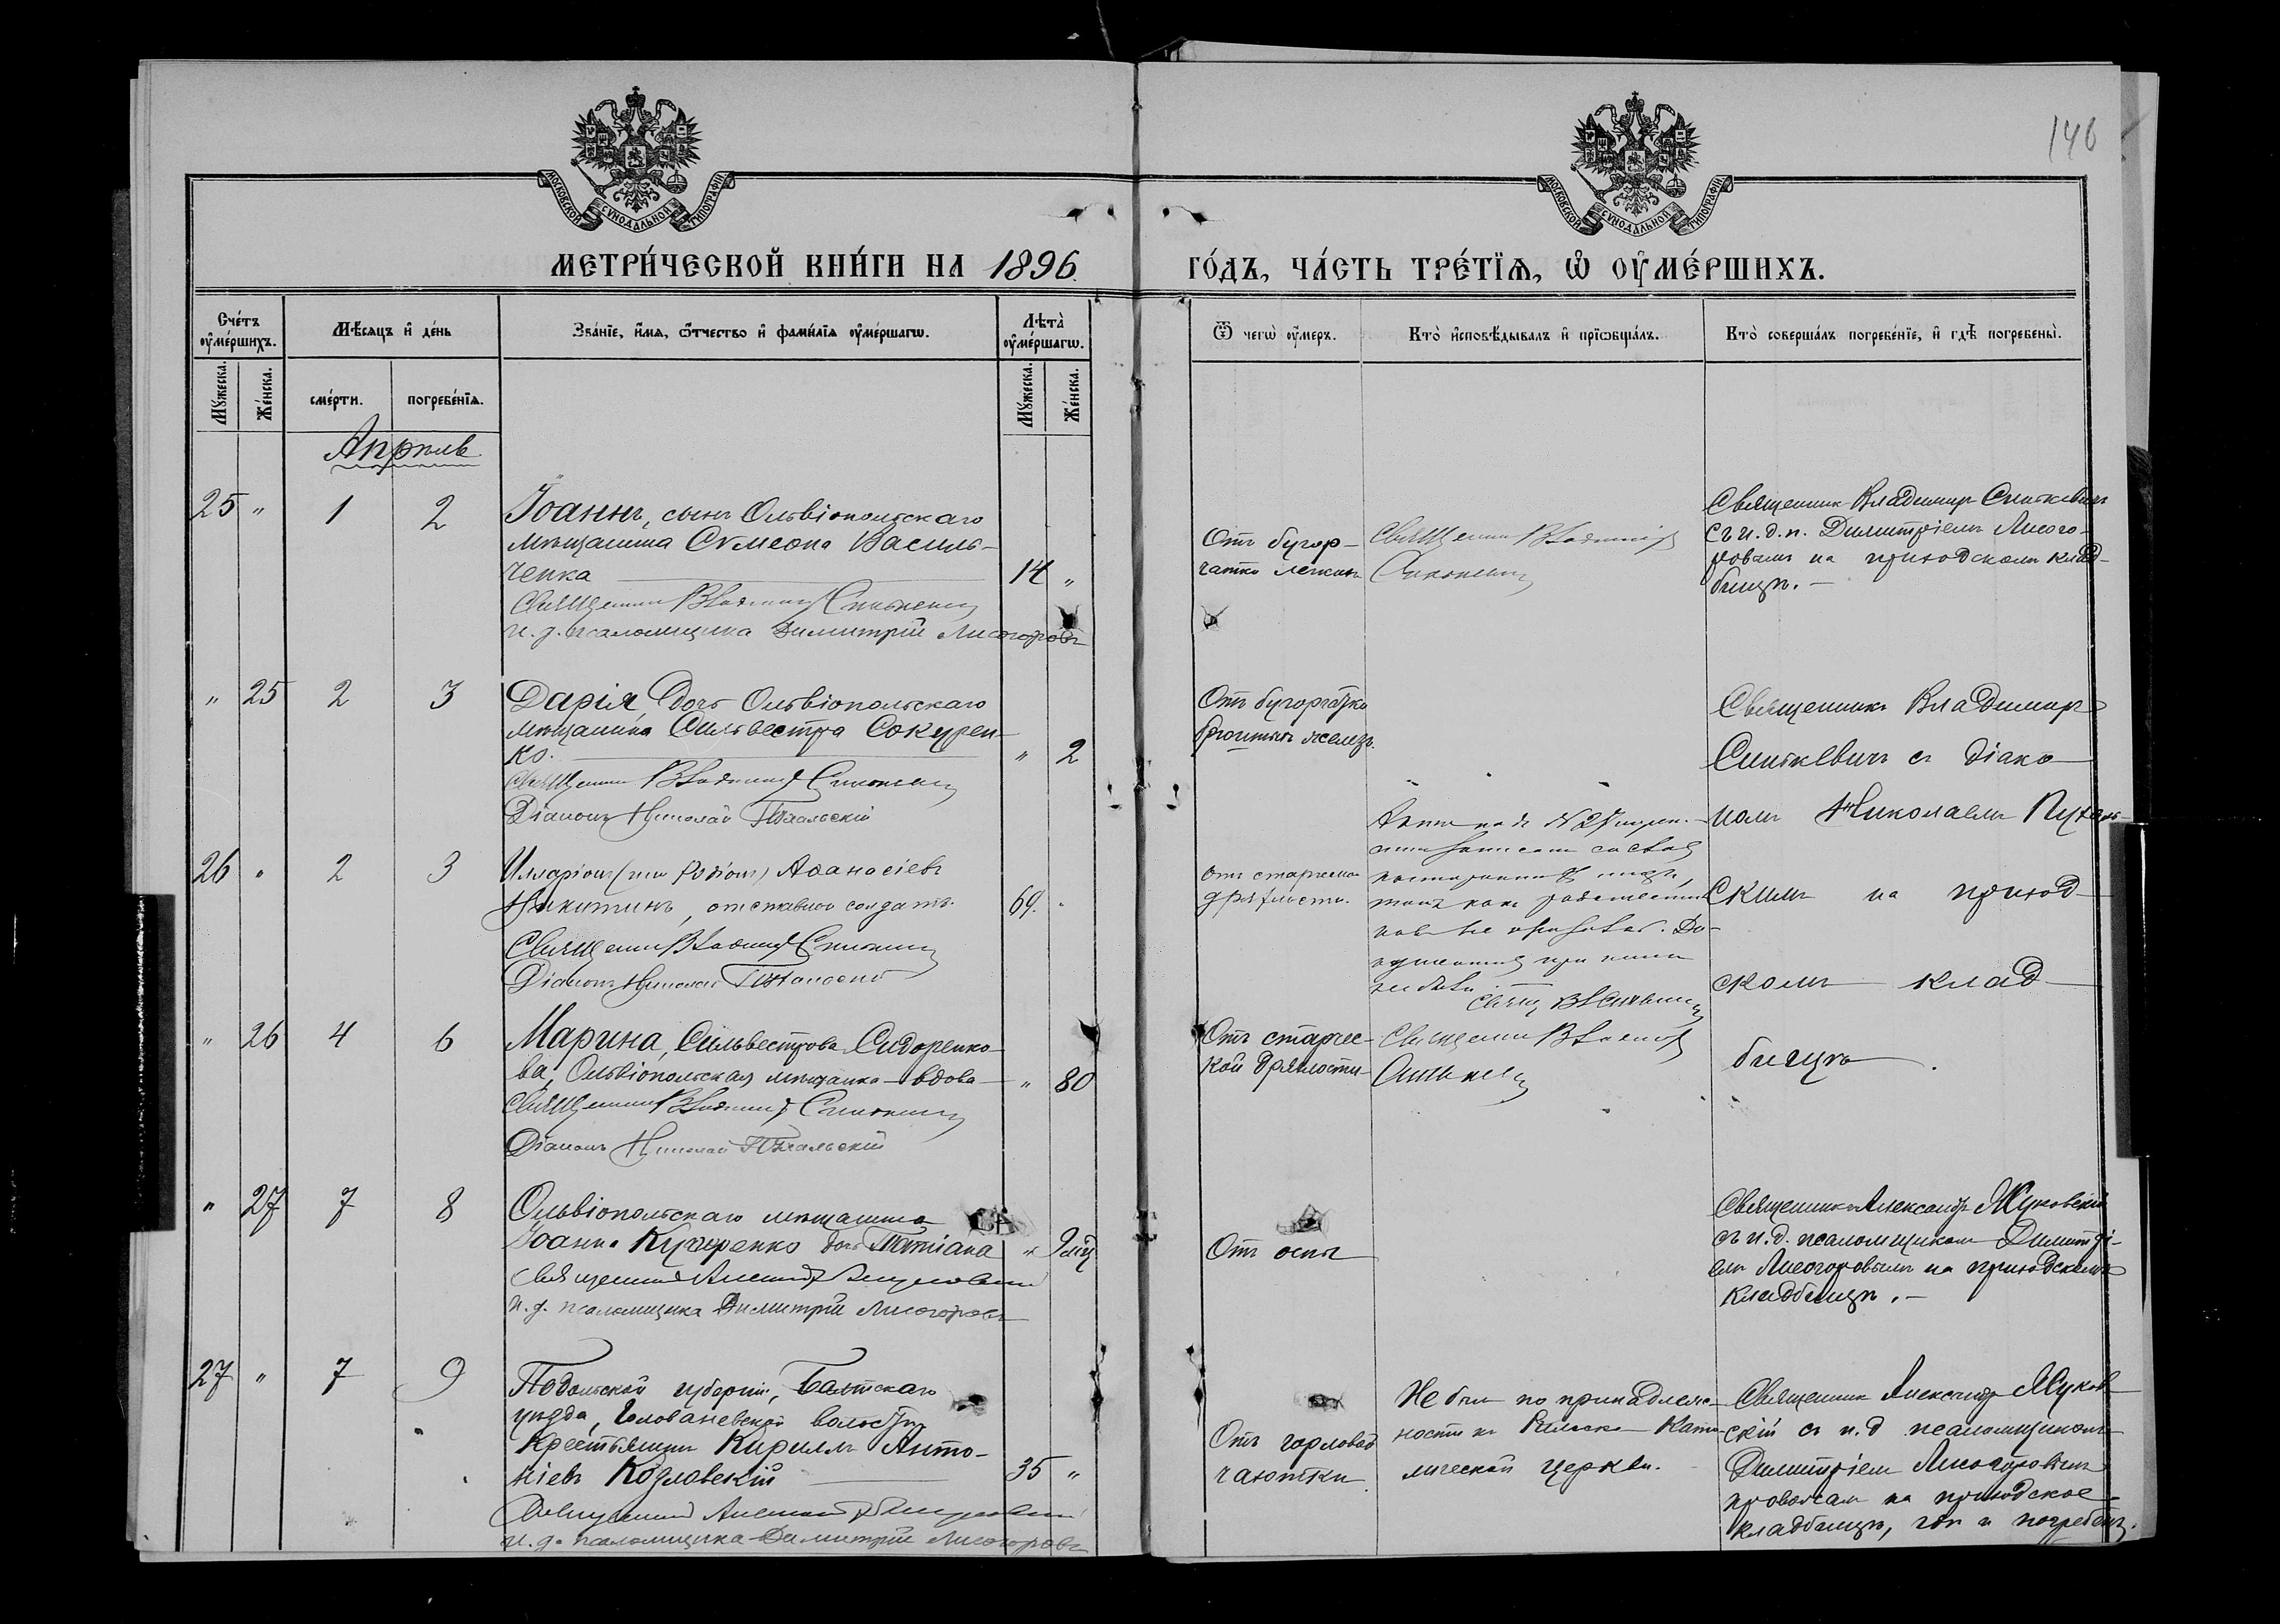 146
МОСКОВСКОЙ СѴНОДАЛЬНОЙ ТИПОГРАФІИ
МОСКОВСКОЙ СѴНОДАЛЬНОЙ ТИПОГРАФІИ
МЕТРИ́ЧЕСКОЙ КНИ́ГИ НА 1896
ГО́ДЪ, ЧА́СТЬ ТРЕ́ТЇѦ, Ѡ҆ ОУ҆МЕ́РШИХЪ.
Сче́тъ оу҆ме́ршихъ.
Мѣ́сяцъ и҆ де́нь
Зва́нїе, и҆́мѧ, ѻ҆́тчество и҆ фами́лїѧ оу҆ме́ршагѡ.
Лѣ́та оу҆ме́ршагѡ.
Ѿ чегѡ̀ оу҆́меръ.
Кто̀ и҆сповѣ́дывалъ и҆ прїѡбща́лъ.
Кто̀ соверша́лъ погребе́нїе, и҆ гдѣ̀ погребены̀.
Мꙋ́жеска.
Же́нска.
сме́рти.
погребе́нїѧ.
Мꙋ́жеска.
Же́нска.
Апрѣль
25 " 1 2
Іоаннъ, сынъ Ольвіопольскаго
мѣщанина Сѵмеона Василь-
ченка
14 "
Священникъ Владиміръ Синькевичъ
и. д. псаломщика Димитрій Лисогоровъ
Отъ бугор-
чатки легкихъ
Священникъ Владиміръ
Синькевичъ
Священникъ Владимиръ Синькевичъ
съ и. д. п. Димитріемъ Лисого-
ровымъ на приходскомъ клад-
бищѣ.
" 25 2 3
Дарія дочь Ольвіопольскаго
мѣщанина Сильвестра Сокурен-
ко.
" 2
Священникъ Владиміръ Синькевичъ
Діаконъ Николай
Отъ бугорчатки
брюшныхъ железъ.
Священникъ Владимиръ
Синькевичъ съ діако-
номъ Николаемъ
скимъ на приход-
скомъ клад-
бищѣ.
26 " 2 3
Илларіонъ (или Родіонъ) Аѳанасіевъ
Никитинъ, отставной солдатъ.
69. "
Священникъ Владиміръ Синькевичъ
Діаконъ Николай
отъ старческой
дряхлости.
" 26 4 6
Марина, Сильвестрова Сидоренко-
ва, Ольвіопольская мѣщанка-вдова
" 80
Священникъ Владиміръ Синькевичъ
Діаконъ Николай
Отъ старчес-
кой дряхлости
Священникъ Владиміръ
Синькевичъ
" 27 7 8
Ольвіопольскаго мѣщанина
Іоанна Кучеренко дочь Татіана
" 9 мѣс
Священникъ Александръ Жуковскій
и. д. псаломщика Димитрій Лисогоровъ
Отъ оспы
Священникъ Александръ Жуковскій
съ и. д. псаломщикомъ Димитрі-
емъ Лисогоровымъ на приходскомъ
кладбищѣ.
27 " 7 9
Подольской губерніи, Балтскаго
уѣзда, Голованевской волости
крестьянинъ Кириллъ Анто-
ніевъ Козловскій
35 "
Священникъ Александръ Жуковскій
и. д. псаломщика Димитрій Лисогоровъ
Отъ горловой
чахотки
Не был по принадлеж-
ности къ Римско-Като-
лической церкви.
Священник Александръ Жуков-
скій съ и. д псаломщикомъ
Димитріем Лисогоровымъ
провожал на приходское
кладбище, гдѣ и погребенъ.